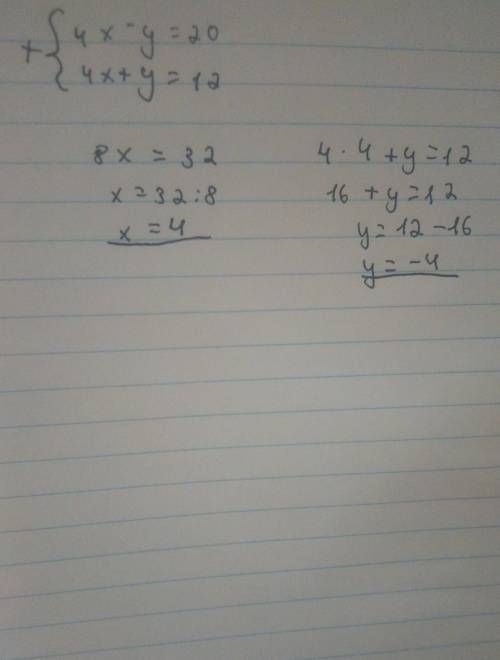 + { 4x - y = 20
4x + y = 12
8x = 32
x = 32 : 8
x = 4
4 · 4 + y = 12
16 + y = 12
y = 12 - 16
y = -4